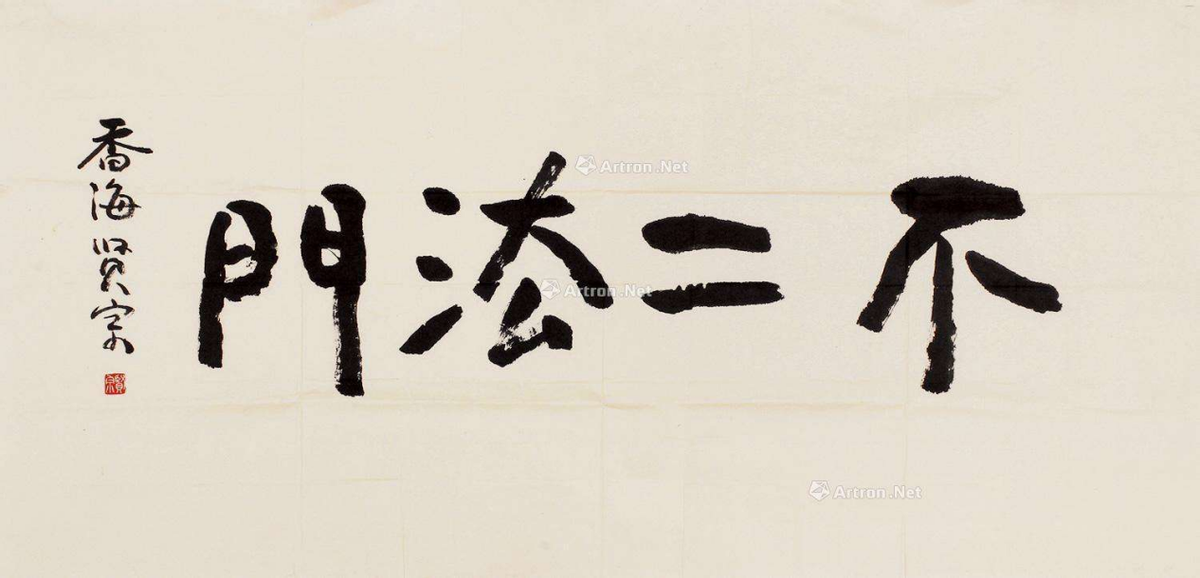 不二法門
香海贤宗
賢宗
Artron.Net
Artron.Net
Artron.Net